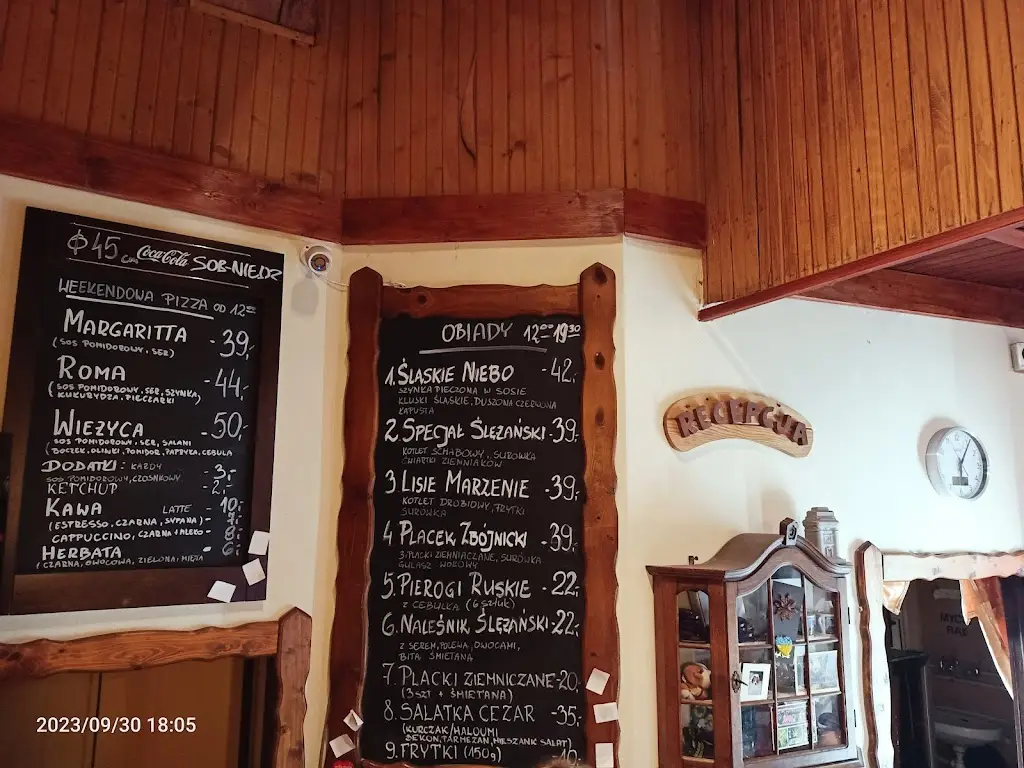 Φ45cm Coca-Cola SOB-NIEDZ
WEEKENDOWA PIZZA OD 12⁰⁰
MARGARITTA - 39,-
(SOS POMIDOROWY, SER)
ROMA - 44,-
(SOS POMIDOROWY, SER, SZYNKA,
KUKURYDZA, PIECZARKI)
WIEŻYCA - 50,-
(SOS POMIDOROWY, SER, SALAMI
BOCZEK, OLIWKI, POMIDOR, PAPRYKA, CEBULA
DODATKI: KAŻDY - 3,-
SOS POMIDOROWY, CZOSNKOWY
KETCHUP - 2,-
KAWA LATTE - 10,-
(ESPRESSO, CZARNA, SYPANA) -
CAPPUCCINO, CZARNA + MLEKO -
HERBATA
(CZARNA, OWOCOWA, ZIELONA, MIĘTA
OBIADY 12⁰⁰-19³⁰
1. ŚLĄSKIE NIEBO - 42,-
SZYNKA PIECZONA W SOSIE
KLUSKI ŚLĄSKIE, DUSZONA CZERWONA
KAPUSTA
2 SPECJAŁ ŚLĘŻAŃSKI - 39,-
KOTLET SCHABOWY, SURÓWKA
ĆWIARTKI ZIEMNIAKÓW
3 LISIE MARZENIE - 39,-
KOTLET DROBIOWY, FRYTKI
SURÓWKA
4 PLACEK ZBÓJNICKI - 39,-
3 PLACKI ZIEMNIACZANE, SURÓWKA
GULASZ WOŁOWY
5. PIEROGI RUSKIE - 22,-
Z CEBULKĄ (6 SZTUK)
6. NALEŚNIK ŚLĘŻAŃSKI - 22,-
Z SEREM, POLEWĄ, OWOCAMI,
BITĄ ŚMIETANĄ
7. PLACKI ZIEMNICZANE - 20,-
(3SZT + ŚMIETANA)
8. SAŁATKA CEZAR - 35,-
(KURCZAK/HALOUMI
BEKON, PARMEZAN, MIESZANK SAŁAT)
9. FRYTKI (150g) 10,-
RECEPCJA
2023/09/30 18:05